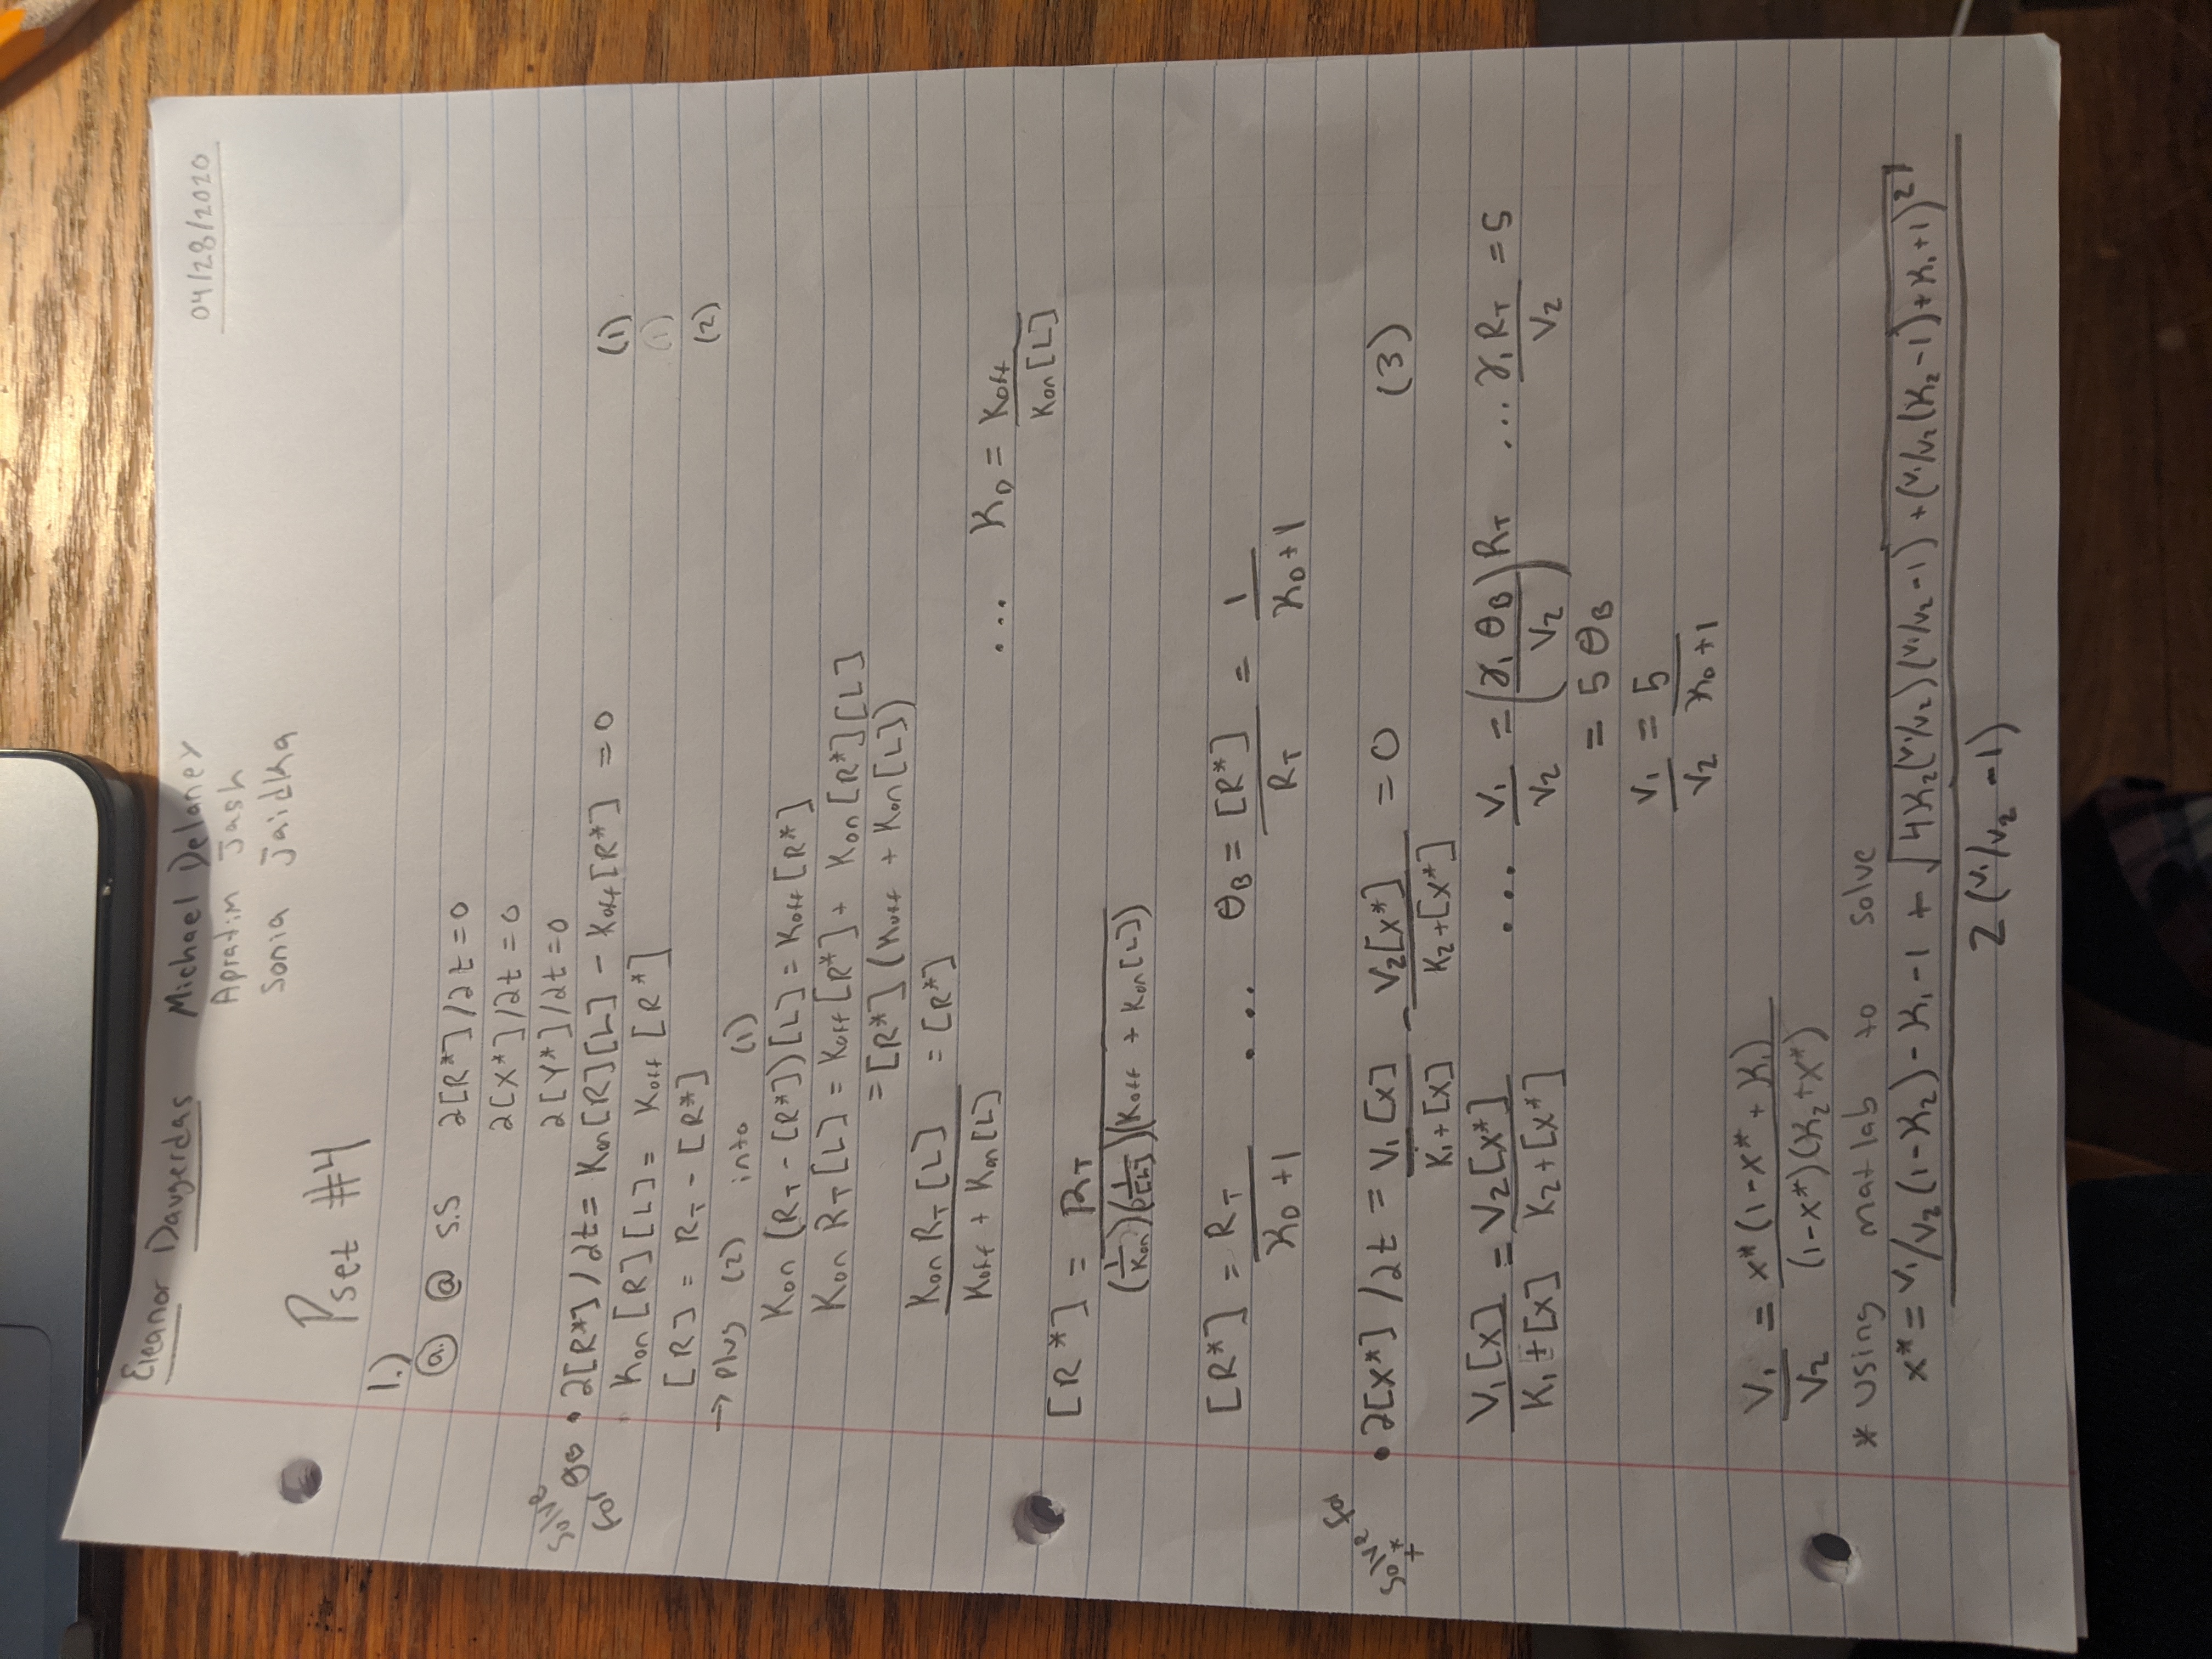 Eleanor Daugerdas Michael Delaney 04/28/2020
Apratim Jash
Sonia Jaidka
Pset #4
1.)
(a.) @ s.s ∂[R*]/∂t = 0
∂[X*]/∂t = 0
∂[Y*]/∂t = 0
Solve for θB
• ∂[R*]/∂t = Kon[R][L] - Koff[R*] = 0 (1)
Kon[R][L] = Koff[R*] (1)
[R] = RT - [R*] (2)
→ Plug (2) into (1)
Kon(RT - [R*])[L] = Koff[R*]
Kon RT[L] = Koff[R*] + Kon[R*][L]
= [R*](Koff + Kon[L])
Kon RT[L] / (Koff + Kon[L]) = [R*]
... KD = Koff / Kon[L]
[R*] = RT / ((1/Kon)(1/[L])(Koff + Kon[L]))
[R*] = RT / (KD + 1) ... θB = [R*] / RT = 1 / (KD + 1)
Solve for
• ∂[X*]/∂t = V1[X] / (K1 + [X]) - V2[X*] / (K2 + [X*]) = 0 (3)
V1[X] / (K1 + [X]) = V2[X*] / (K2 + [X*]) ... V1/V2 = (γ1 θB / V2) RT ... γ1 RT / V2 = 5
= 5 θB
V1/V2 = 5 / (KD + 1)
V1/V2 = x*(1 - x* + K1) / ((1 - x*)(K2 + x*))
* using matlab to solve
x* = (V1/V2(1 - K2) - K1 - 1 + √(4K2(V1/V2)(V1/V2 - 1) + (V1/V2(K2 - 1) + K1 + 1)²)) / (2(V1/V2 - 1))